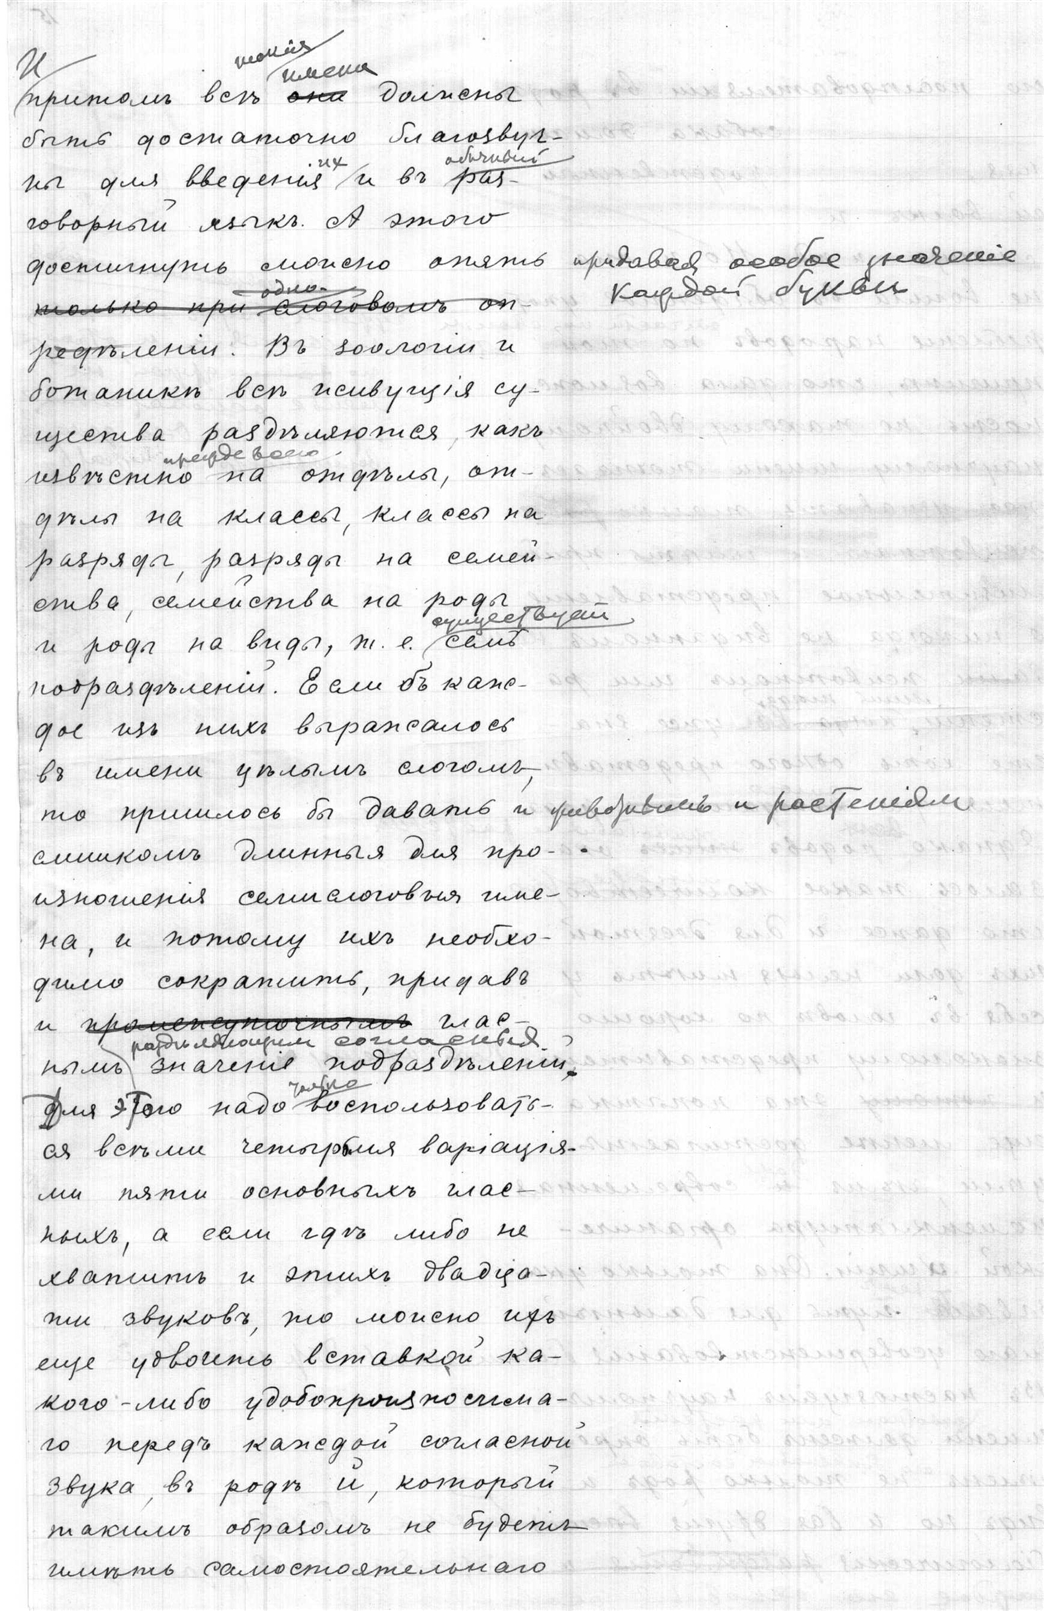 И такія имена
притомъ всѣ они должны
быть достаточно благозвуч-
ны для введенія ихъ и въ обычный раз-
говорный языкъ. А этого
достигнуть можно опять придавая особое значеніе
каждой буквы
только при одно-слоговомъ оп-
редѣленіи. Въ зоологіи и
ботаникѣ всѣ живущія су-
щества раздѣляются, какъ
извѣстно прежде всего на отдѣлы, от-
дѣлы на классы, классы на
разряды, разряды на семей-
ства, семейства на роды
и роды на виды, т. е. существуетъ семь
подраздѣленій. Если бъ каж-
дое изъ нихъ выражалось
въ имени цѣлымъ слогомъ,
то пришлось бы давать и животнымъ и растеніямъ
слишкомъ длинныя для про-
изношенія семислоговыя име-
на, и потому ихъ необхо-
димо сократить, придавъ
и промежуточнымъ глас-
нымъ раздѣляющимъ согласныя значеніе подраздѣленій.
Для этого надо только воспользовать-
ся всѣми четырьмя варіація-
ми пяти основныхъ глас-
ныхъ, а если гдѣ либо не
хватитъ и этихъ двадца-
ти звуковъ, то можно ихъ
еще удвоить вставкой ка-
кого-либо удобопроизносима-
го передъ каждой согласной
звука, въ родѣ й, который
такимъ образомъ не будетъ
имѣть самостоятельнаго